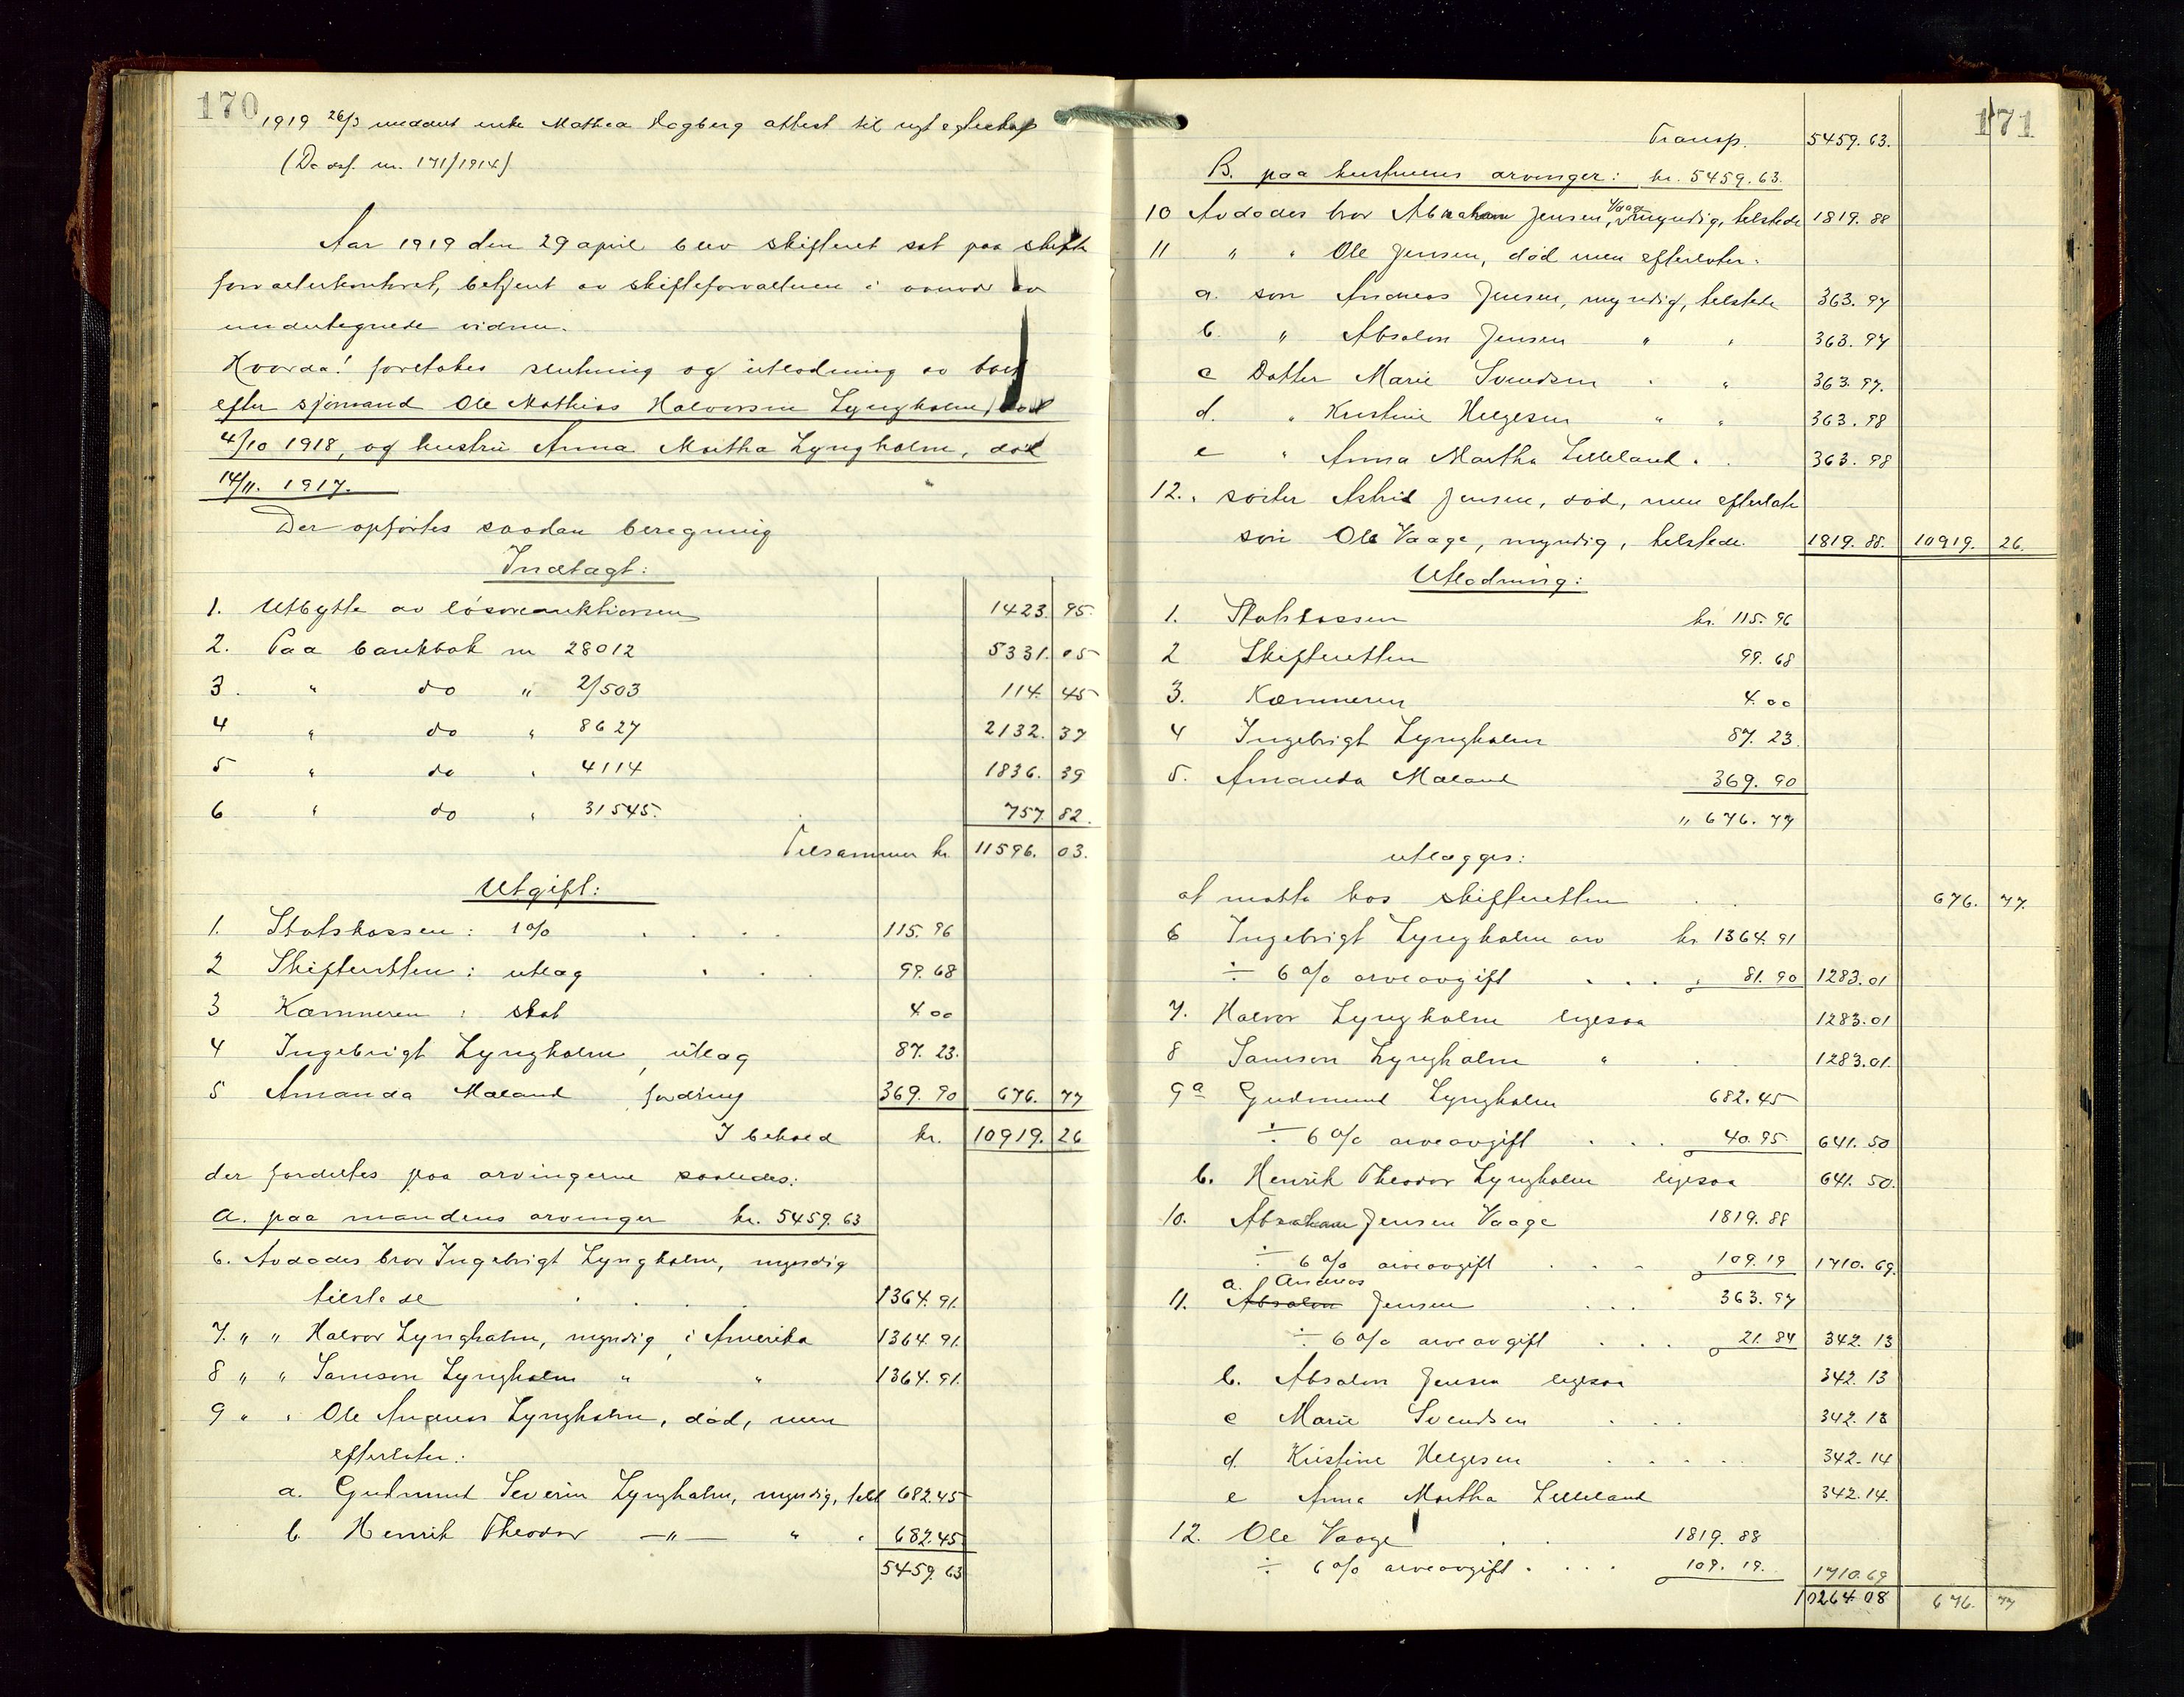 170
1919 26/3 meddelt enke Mathea Hagberg attest til nyt egteskap
(Dødsf. nr. 171/1914)
Aar 1919 den 29 april blev skifteret sat paa skifte
forvalterkontoret, betjent av skifteforvalteren i overvær av
undertegnede vidne.
Hvorda! foretokes slutning og utlodning av boet
efter sjømand Ole Mathias Halvorsen Lyngholm, død
4/10 1918, og hustru Anna Martha Lyngholm, død
14/11. 1917.
Der opførtes saadan beregning
Indtægt:
1. Utbytte av løsøreauktionen 1423. 95.
2. Paa bankbok nr 28012 5331. 05
3. " do " 2/503 114. 45
4 " do " 8627 2132. 37
5 " do " 4114 1836. 39
6 " do " 31545. 757. 82.
Tilsammen kr. 11596. 03.
Utgift:
1. Statskassen: 1% . . . . 115. 96
2 Skifteretten: utlæg . . . 99. 68
3 Kæmneren: skat 4 00
4 Ingebrigt Lyngholm, utlæg 87. 23.
5 Amanda Maland fordring 369. 90 676. 77
I behold kr. 10919. 26
der fordeltes paa arvingerne saaledes:
A. paa mandens arvinger kr. 5459. 63
6. Avdødes bror Ingebrigt Lyngholm, myndig
tilstede . . . 1364. 91.
7. " " Halvor Lyngholm, myndig, i Amerika 1364. 91.
8 " " Samson Lyngholm " " 1364. 91.
9 " " Ole Andreas Lyngholm, død, men
efterlater:
a. Gudmund Severin Lyngholm, myndig, telst 682.45
b Henrik Theodor —"— " . 682.45
5459. 63
171
Transp. 5459. 63.
B. paa hustruens arvinger: kr. 5459. 63.
10 Avdødes bror Abraham Jensen Vaage, myndig, telstede 1819. 88
11 " " Ole Jensen, død men efterlater:
a. søn Andreas Jensen, myndig, telstede 363. 97
b. " Absalon Jensen " " 363. 97
c Datter Marie Svendsen " " 363. 97.
d. " Kristine Helgesen " " 363. 98
e " Anna Martha Lilleland . . 363. 98
12. " søster Astrid Jensen, død, men efterlate
søn Ole Vaage, myndig, telstede. 1819. 88. 10919. 26.
Utlodning:
1. Statskassen kr. 115. 96
2 Skifteretten 99. 68
3. Kæmneren 4. 00
4 Ingebrigt Lyngholm 87. 23.
5. Amanda Maland 369. 90
" 676. 77
utlægges:
at motta hos skifteretten . . 676. 77.
6 Ingebrigt Lyngholm arv kr 1364. 91
÷ 6 % arveavgift . . . 81. 90 1283. 01
7. Halvor Lyngholm ligesaa 1283. 01
8 Samson Lyngholm " . 1283. 01.
9a Gudmund Lyngholm 682. 45
÷ 6 % arveavgift . . . 40. 95. 641. 50
b. Henrik Theodor Lyngholm ligesaa 641. 50.
10. Abraham Jensen Vaage 1819. 88
÷ 6 % arveavgift . . . 109. 19 1710. 69.
a. Andreas
11. Absalon Jensen . . . 363. 97
÷ 6 % arveavgift . . . 21. 84 342. 13
b. Absalon Jensen ligesaa 342. 13
c Marie Svendsen . . . 342. 13
d. Kristine Helgesen . . . . . 342. 14
e Anna Martha Lilleland 342. 14.
12. Ole Vaage . . 1819. 88
÷ 6 % arveavgift . . . . 109. 19. 1710. 69
10264 08 676. 77